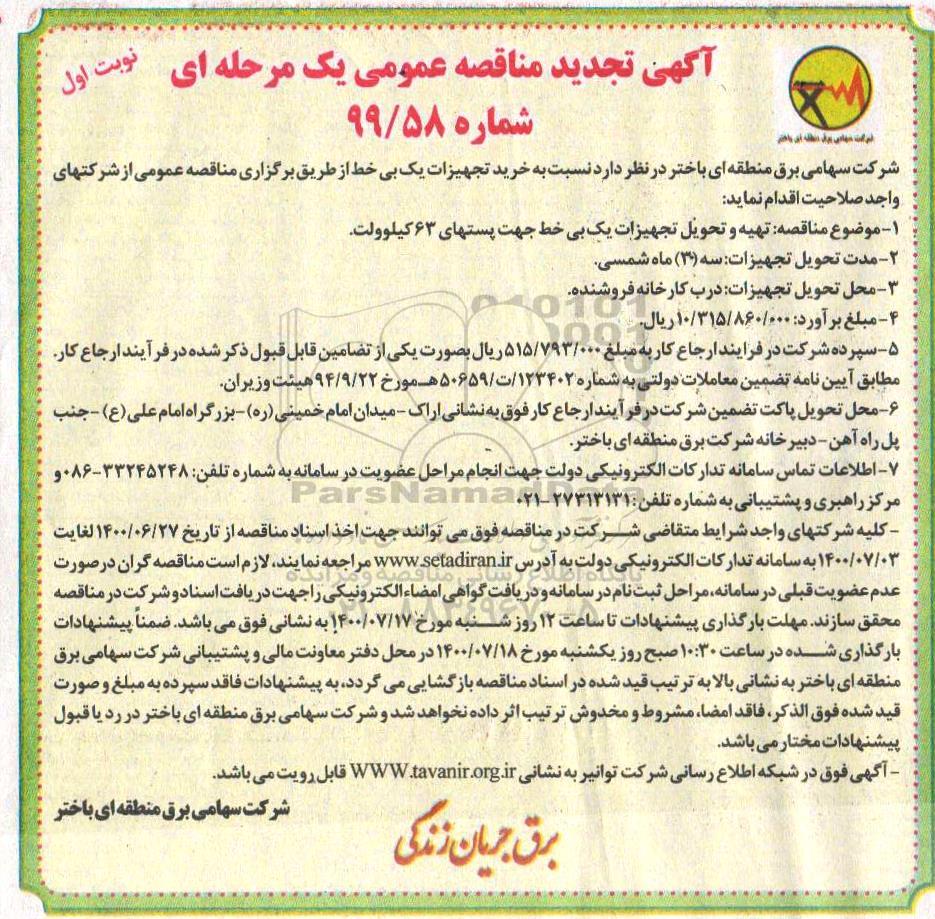 آگهی تجدید مناقصه عمومی یک مرحله ای
نوبت اول
شماره ۹۹/۵۸
شرکت سهامی برق منطقه ای باختر
شرکت سهامی برق منطقه ای باختر در نظر دارد نسبت به خرید تجهیزات یک بی خط از طریق برگزاری مناقصه عمومی از شرکتهای
واجد صلاحیت اقدام نماید:
۱-موضوع مناقصه: تهیه و تحویل تجهیزات یک بی خط جهت پستهای ۶۳ کیلوولت.
۲-مدت تحویل تجهیزات: سه (۳) ماه شمسی.
۳-محل تحویل تجهیزات: درب کارخانه فروشنده.
۴-مبلغ برآورد: ۱۰/۳۱۵/۸۶۰/۰۰۰ ریال.
۵-سپرده شرکت در فرایند ارجاع کار به مبلغ ۵۱۵/۷۹۳/۰۰۰ ریال بصورت یکی از تضامین قابل قبول ذکر شده در فرآیند ارجاع کار.
مطابق آیین نامه تضمین معاملات دولتی به شماره ۱۲۳۴۰۲/ت/۵۰۶۵۹هـ مورخ ۹۴/۹/۲۲ هیئت وزیران.
۶-محل تحویل پاکت تضمین شرکت در فرآیند ارجاع کار فوق به نشانی اراک -میدان امام خمینی (ره)-بزرگراه امام علی(ع) -جنب
پل راه آهن-دبیرخانه شرکت برق منطقه ای باختر.
۷-اطلاعات تماس سامانه تدارکات الکترونیکی دولت جهت انجام مراحل عضویت در سامانه به شماره تلفن: ۳۳۲۴۵۲۴۸-۰۸۶ و
مرکز راهبری و پشتیبانی به شماره تلفن: ۲۷۳۱۳۱۳۱-۰۲۱
- کلیه شرکتهای واجد شرایط متقاضی شـــرکت در مناقصه فوق می توانند جهت اخذ اسناد مناقصه از تاریخ ۱۴۰۰/۰۶/۲۷ لغایت
۱۴۰۰/۰۷/۰۳ به سامانه تدارکات الکترونیکی دولت به آدرس www.setadiran.ir مراجعه نمایند، لازم است مناقصه گران در صورت
عدم عضویت قبلی در سامانه، مراحل ثبت نام در سامانه و دریافت گواهی امضاء الکترونیکی را جهت دریافت اسناد و شرکت در مناقصه
محقق سازند. مهلت بارگذاری پیشنهادات تا ساعت ۱۲ روز شـــنبه مورخ ۱۴۰۰/۰۷/۱۷ به نشانی فوق می باشد. ضمناً پیشنهادات
بارگذاری شـــده در ساعت ۱۰:۳۰ صبح روز یکشنبه مورخ ۱۴۰۰/۰۷/۱۸ در محل دفتر معاونت مالی و پشتیبانی شرکت سهامی برق
منطقه ای باختر به نشانی بالا به ترتیب قید شده در اسناد مناقصه بازگشایی می گردد، به پیشنهادات فاقد سپرده به مبلغ و صورت
قید شده فوق الذکر، فاقد امضا، مشروط و مخدوش ترتیب اثر داده نخواهد شد و شرکت سهامی برق منطقه ای باختر در رد یا قبول
پیشنهادات مختار می باشد.
- آگهی فوق در شبکه اطلاع رسانی شرکت توانیر به نشانی WWW.tavanir.org.ir قابل رویت می باشد.
شرکت سهامی برق منطقه ای باختر
برق جریان زندگی
ParsNamadData
پایگاه اطلاع رسانی مناقصه و مزایده
۰۲۱-۸۸۳۴۹۶۷۰-۵